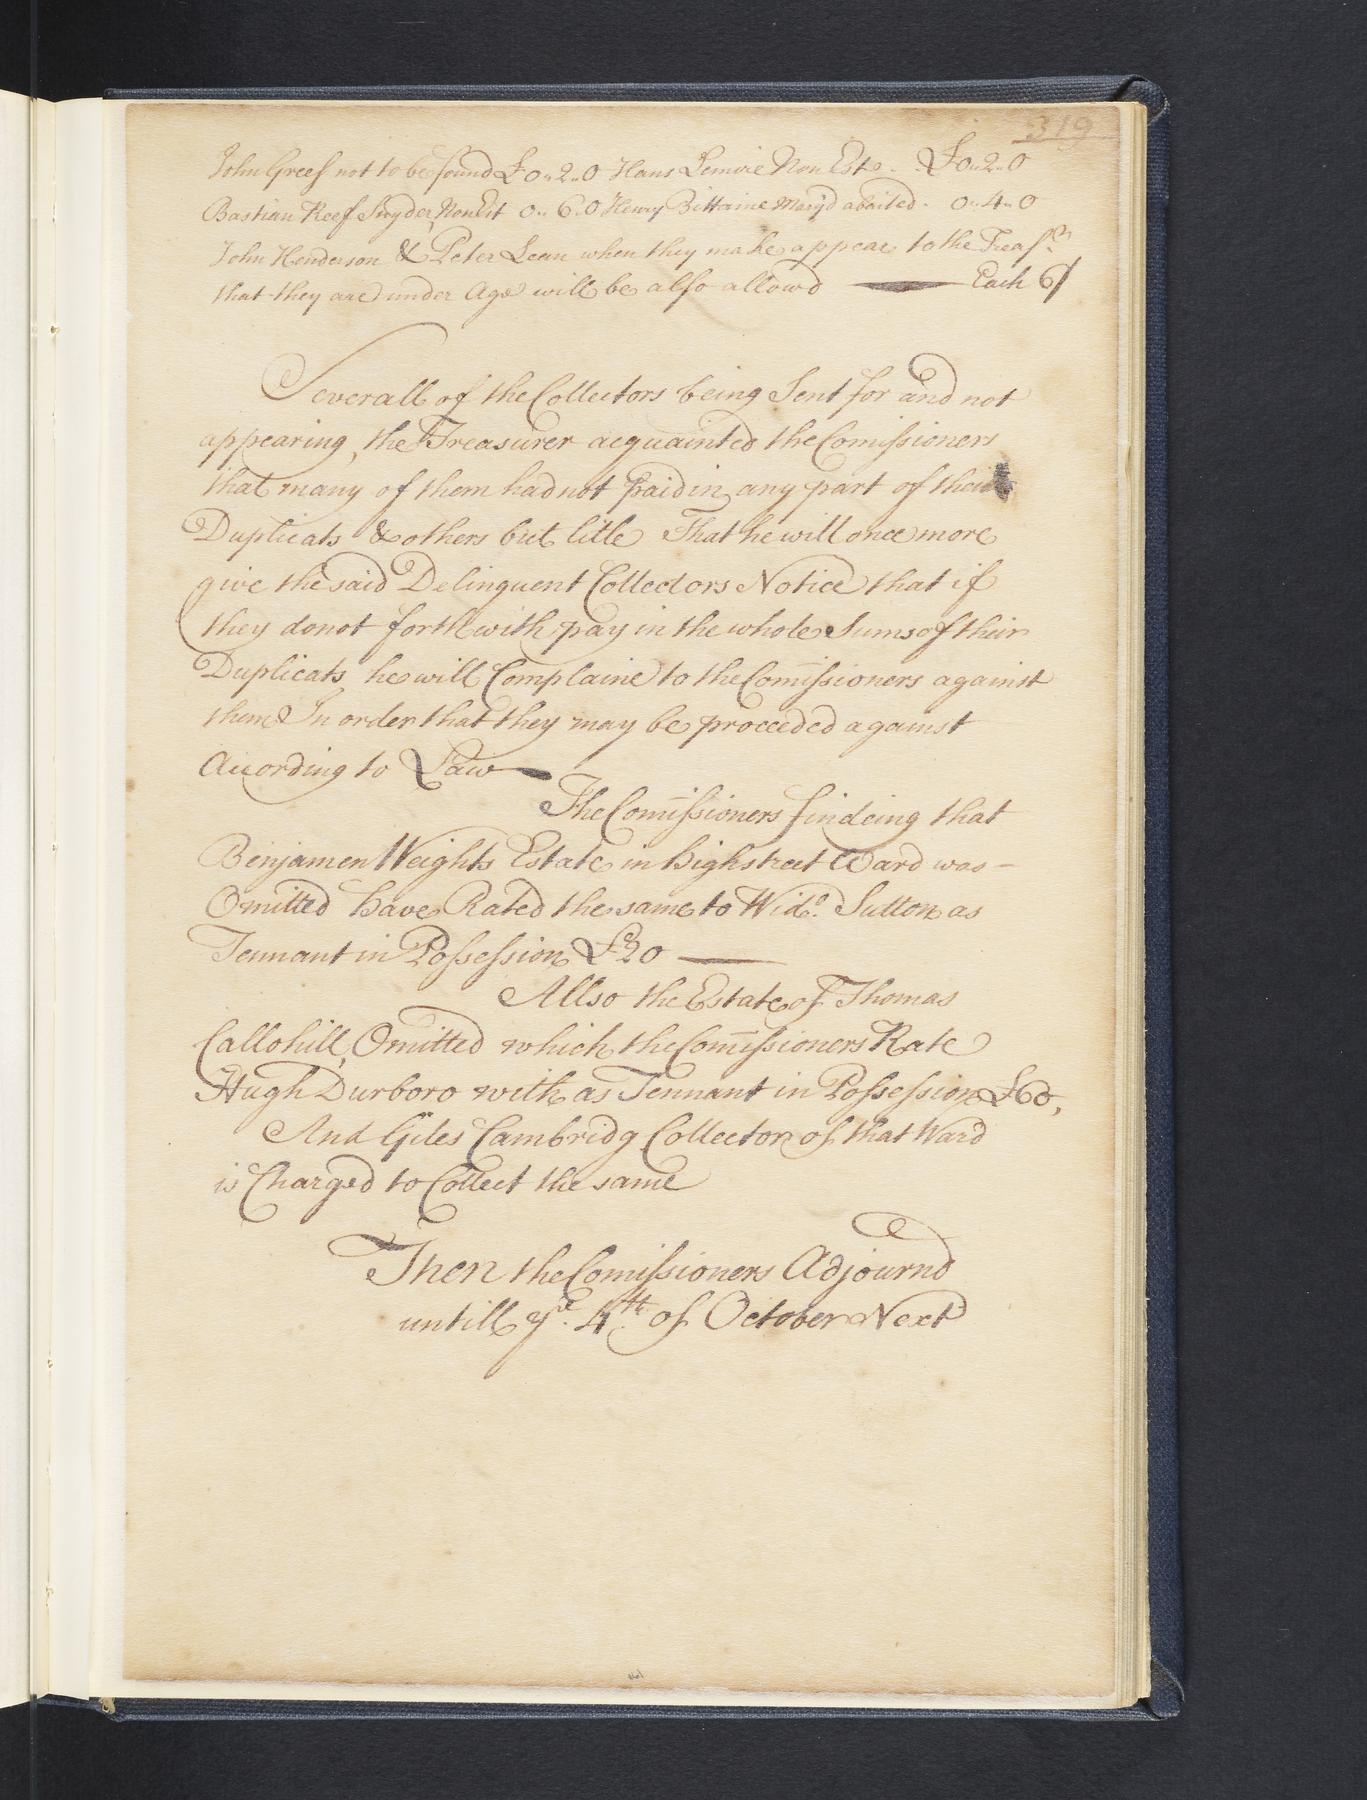 319
John Greef not to be found £0..2..0 Hans Lemire Non Est. . £0..2..0
Bastian Reef Snyder, Non Est 0..6..0 Henry Bittaine Maryd abaited. 0..4..0
John Henderson & Peter Lean when they make appear to the Treasr.
that they are under Age will be also allowd — Each 6/
Severall of the Collectors being Sent for and not
appearing, the Treasurer acquainted the Comissioners
that many of them had not paid in any part of their
Duplicats & others but litle That he will once more
give the said Delinquent Collectors Notice that if
they do not forthwith pay in the whole Sums of their
Duplicats he will Complaine to the Comissioners against
them In order that they may be proceeded against
Acording to Law —
The Comissioners findeing that
Benjamen Weights Estate in highstreet Ward was –
Omitted have Rated the same to Wido. Sutton as
Tennant in Possession £20 —
Allso the Estate of Thomas
Callohill, Omitted which the Comissioners Rate
Hugh Durboro with as Tennant in Possession £60,
And Giles Cambridg Collector of that Ward
is Charged to Collect the same
Then the Comissioners Adjournd
untill ye. 4th. of October Next